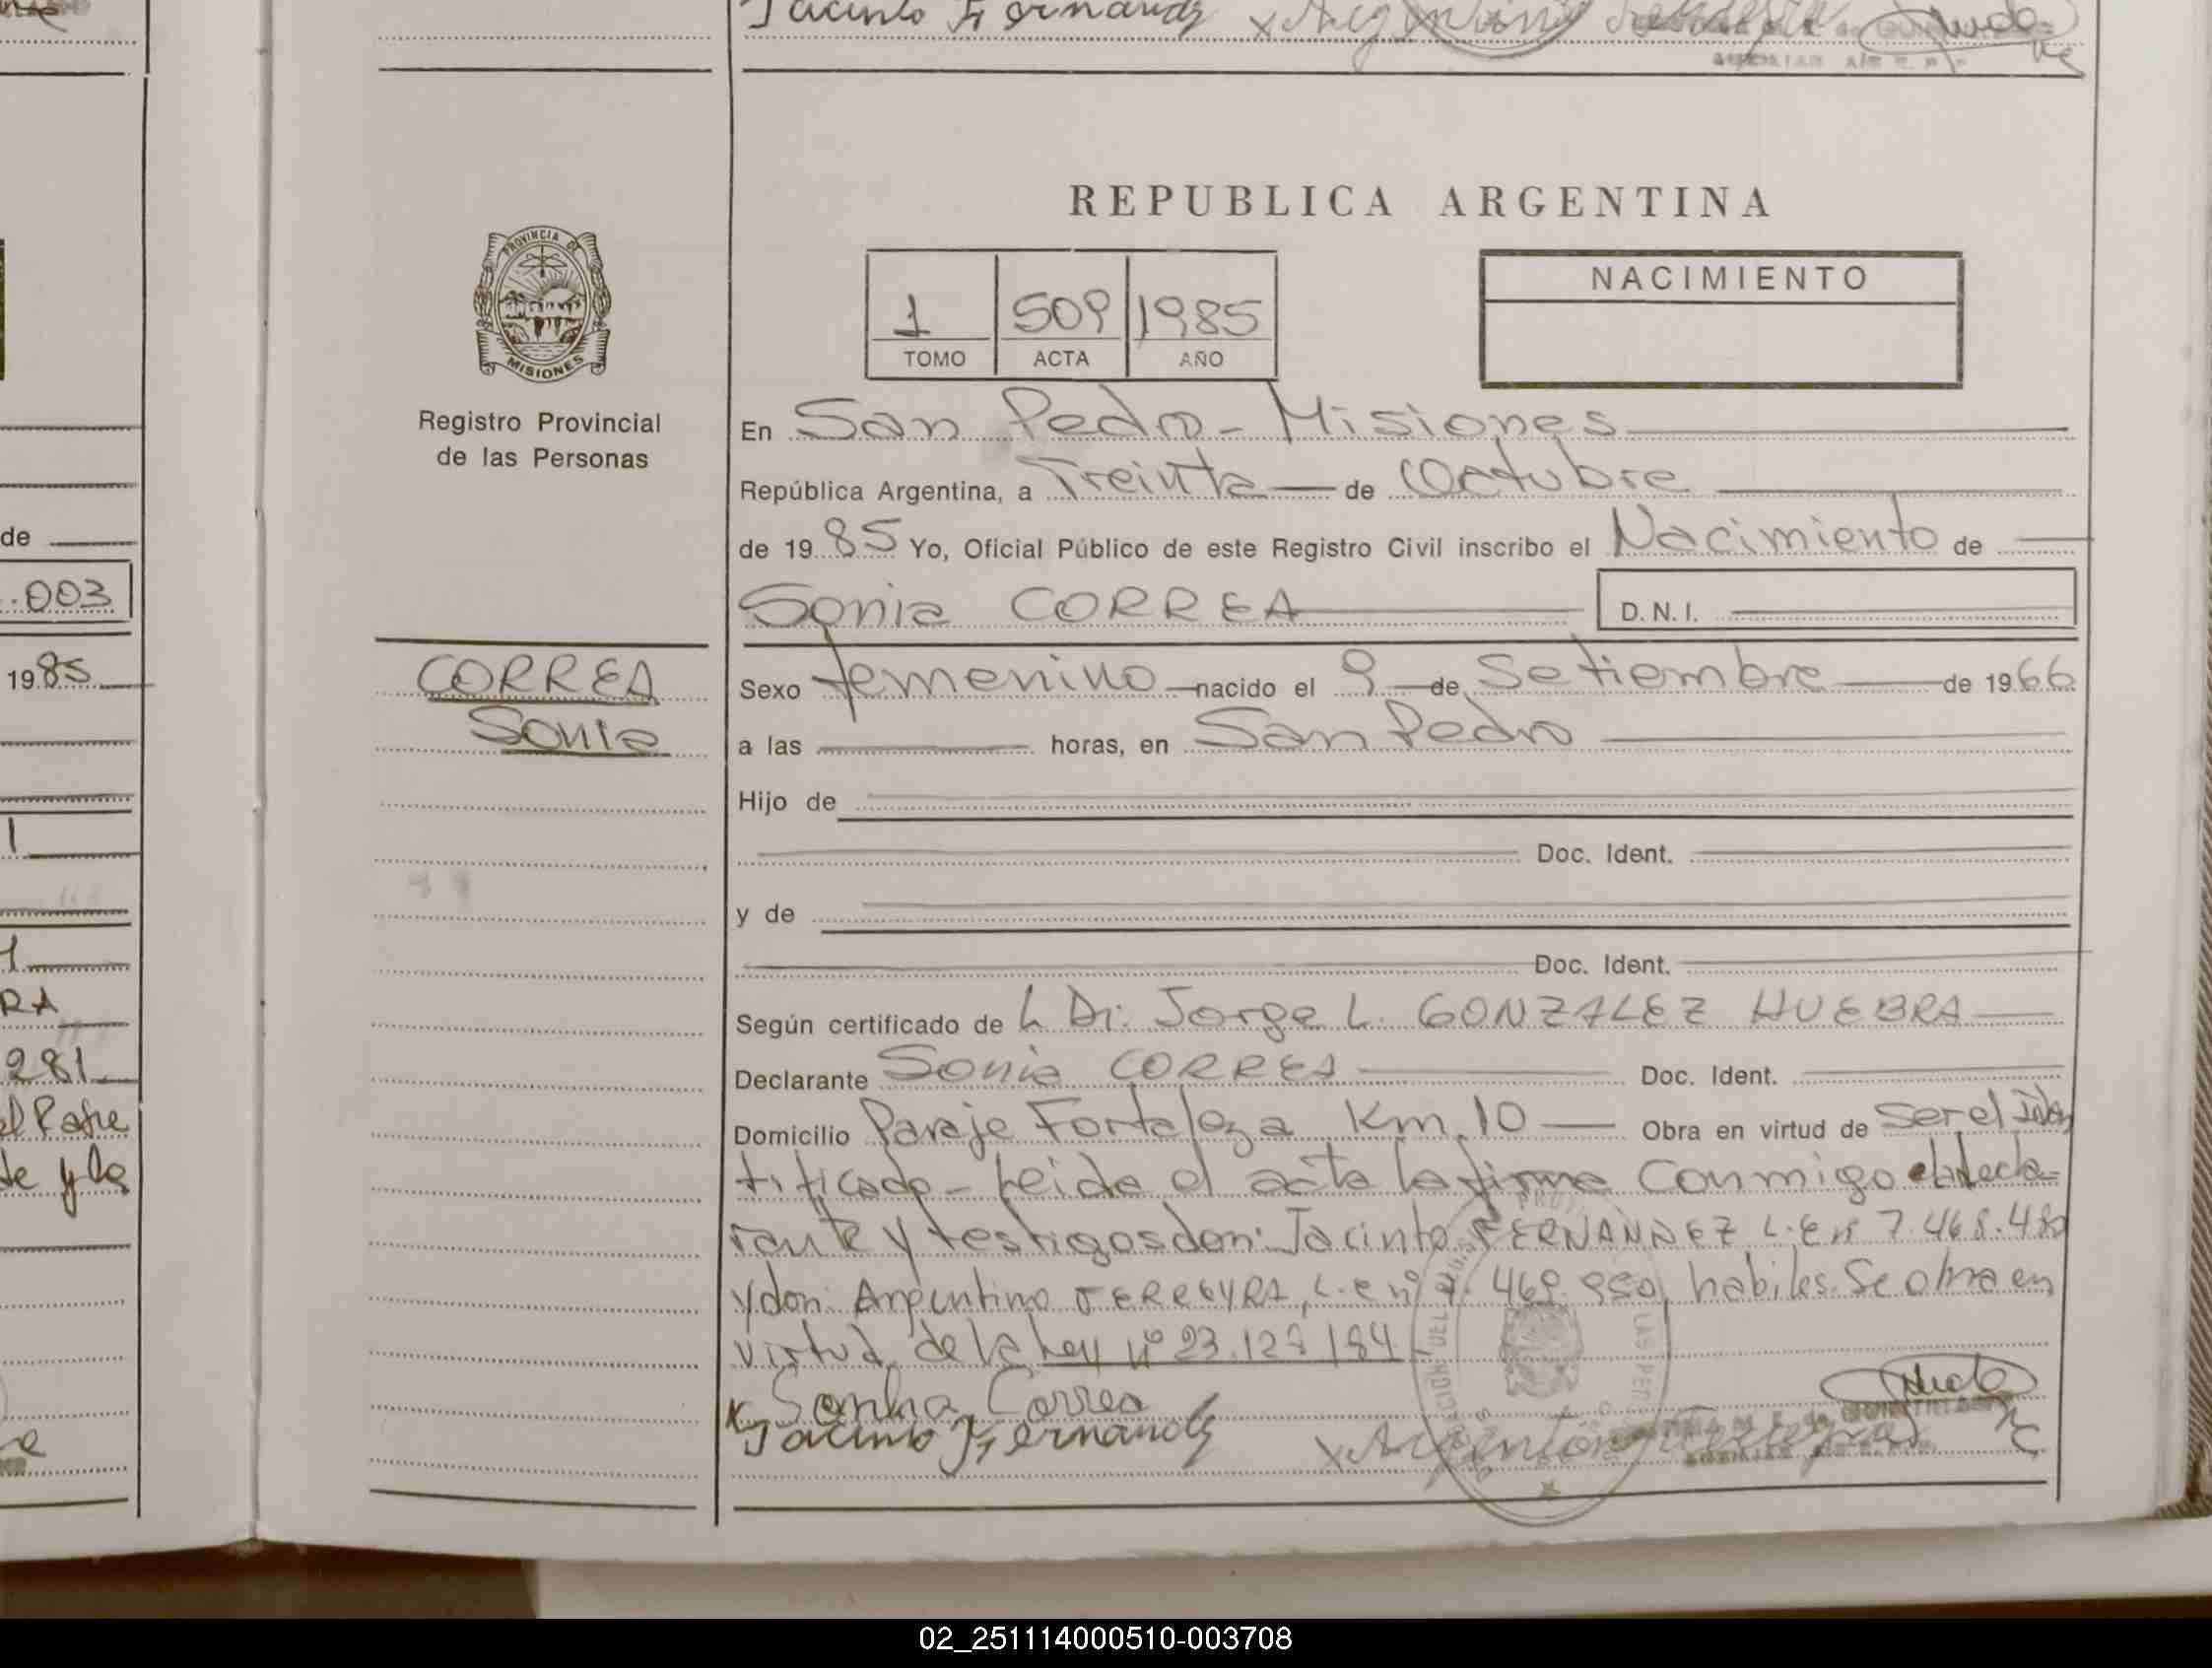 Jacinto Fernandz
REPUBLICA ARGENTINA
PROVINCIA DE
MISIONES
Registro Provincial
de las Personas
1 509 1985
TOMO ACTA AÑO
NACIMIENTO
En San Pedro - Misiones
República Argentina, a Treinta de Octubre
de 1985 Yo, Oficial Público de este Registro Civil inscribo el Nacimiento de
Sonia CORREA D.N.I.
CORREA
Sonia
Sexo femenino nacido el 9 de Setiembre de 1966
a las horas, en San Pedro
Hijo de
Doc. Ident.
y de
Doc. Ident.
Según certificado de L Dr. Jorge L. GONZALEZ HUEBRA
Declarante Sonia CORREA Doc. Ident.
Domicilio Paraje Fortaleza Km. 10 Obra en virtud de Ser el Iden
tificado - Leida el acta la firma conmigo el decla=
rante y testigos don: Jacinto FERNANDEZ L.E nº 7.468.480
y don: Argentino FERREYRA, L.E nº 7.469.950, habiles. Se obra en
virtud de la Ley nº 23.128/84
x Sonha Correa
Jacinto Fernandz
de
.003
1985
1
RA
281
el Padre
de y la
02_251114000510-003708